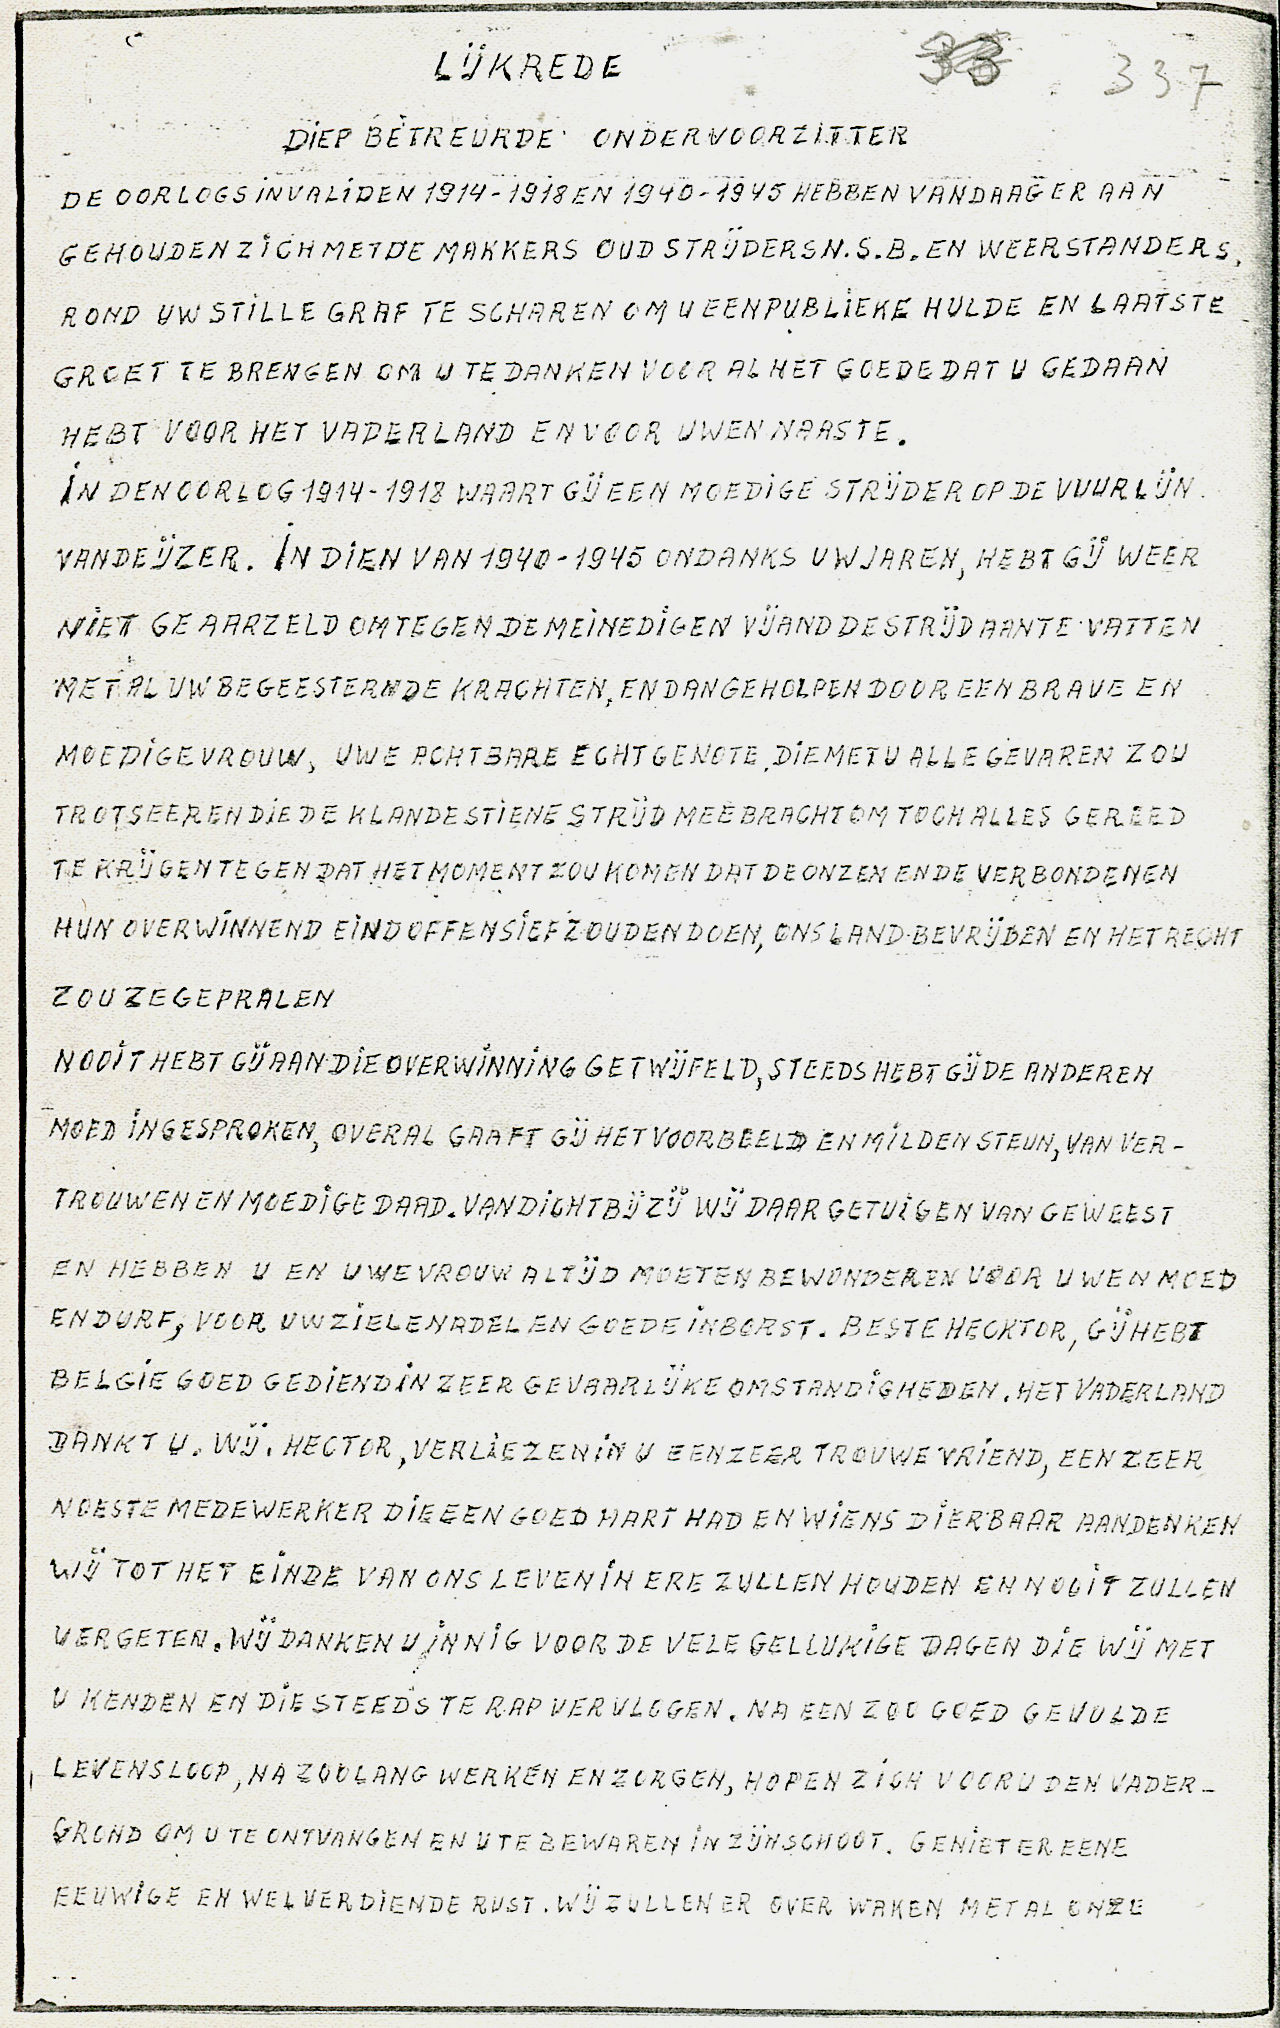 LIJKREDE
337
DIEP BETREURDE ONDERVOORZITTER
DE OORLOGSINVALIDEN 1914-1918 EN 1940-1945 HEBBEN VANDAAG ER AAN
GEHOUDEN ZICH MET DE MAKKERS OUD STRIJDERS N.S.B. EN WEERSTANDERS,
ROND UW STILLE GRAF TE SCHAREN OM U EEN PUBLIEKE HULDE EN LAATSTE
GROET TE BRENGEN OM U TE DANKEN VOOR AL HET GOEDE DAT U GEDAAN
HEBT VOOR HET VADERLAND EN VOOR UWEN NAASTE.
IN DEN OORLOG 1914-1918 WAART GIJ EEN MOEDIGE STRIJDER OP DE VUURLIJN
VAN DE IJZER. IN DIEN VAN 1940-1945 ONDANKS UW JAREN, HEBT GIJ WEER
NIET GEAARZELD OM TEGEN DE MEINEDIGEN VIJAND DE STRIJD AAN TE VATTEN
MET AL UW BEGEESTERNDE KRACHTEN, EN DAN GEHOLPEN DOOR EEN BRAVE EN
MOEDIGE VROUW, UWE ACHTBARE ECHTGENOTE, DIE MET U ALLE GEVAREN ZOU
TROTSEEREN DIE DE KLANDESTIENE STRIJD MEEBRACHT OM TOCH ALLES GEREED
TE KRIJGEN TEGEN DAT HET MOMENT ZOU KOMEN DAT DE ONZEN EN DE VERBONDENEN
HUN OVERWINNEND EINDOFFENSIEF ZOUDEN DOEN, ONS LAND BEVRIJDEN EN HET RECHT
ZOU ZEGEPRALEN
NOOIT HEBT GIJ AAN DIE OVERWINNING GETWIJFELD, STEEDS HEBT GIJ DE ANDEREN
MOED INGESPROKEN, OVERAL GAAFT GIJ HET VOORBEELD EN MILDEN STEUN, VAN VER-
TROUWEN EN MOEDIGE DAAD. VAN DICHTBIJ ZIJ WIJ DAAR GETUIGEN VAN GEWEEST
EN HEBBEN U EN UWE VROUW ALTIJD MOETEN BEWONDEREN VOOR UWEN MOED
EN DURF, VOOR UW ZIELENADEL EN GOEDE INBORST. BESTE HECKTOR, GIJ HEBT
BELGIE GOED GEDIEND IN ZEER GEVAARLIJKE OMSTANDIGHEDEN. HET VADERLAND
DANKT U. WIJ. HECTOR, VERLIEZEN IN U EEN ZEER TROUWE VRIEND, EEN ZEER
NOESTE MEDEWERKER DIE EEN GOED HART HAD EN WIENS DIERBAAR AANDENKEN
WIJ TOT HET EINDE VAN ONS LEVEN IN ERE ZULLEN HOUDEN EN NOOIT ZULLEN
VERGETEN. WIJ DANKEN U INNIG VOOR DE VELE GELLUKIGE DAGEN DIE WIJ MET
U KENDEN EN DIE STEEDS TE RAP VERVLOGEN. NA EEN ZOO GOED GEVULDE
LEVENSLOOP, NA ZOOLANG WERKEN EN ZORGEN, HOPEN ZICH VOOR U DEN VADER-
GROND OM U TE ONTVANGEN EN U TE BEWAREN IN ZIJN SCHOOT. GENIET ER EENE
EEUWIGE EN WELVERDIENDE RUST. WIJ ZULLEN ER OVER WAKEN MET AL ONZE